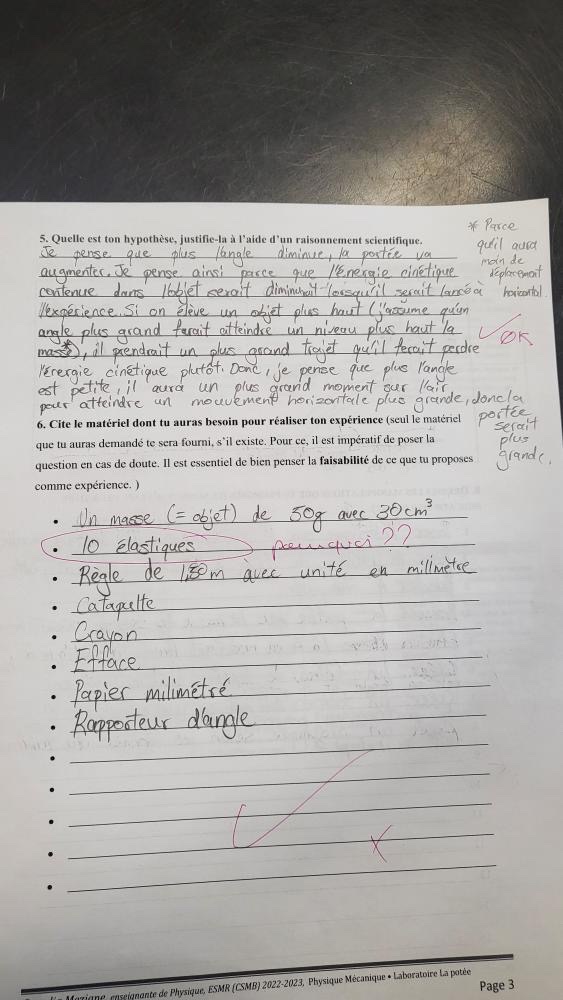 5. Quelle est ton hypothèse, justifie-la à l'aide d'un raisonnement scientifique.
Je pense que plus l'angle diminue, la portée va
augmenter. Je pense ainsi parce que l'énergie cinétique
contenue dans l'objet serait lorsqu'il serait lancé à
l'expérience. Si on élève un objet plus haut (j'assume qu'un
angle plus grand ferait atteindre un niveau plus haut la
masse*), il prendrait un plus grand trajet qu'il ferait perdre
l'érergie cinétique plutôt. Donc, je pense que plus l'angle
est petite, il aura un plus grand moment sur l'air
pour atteindre un mouvement horizontale plus grande, donc la
portée
serait
plus
grande.
* Parce
qu'il aura
moin de
déplacement
horizontal.
OK
6. Cite le matériel dont tu auras besoin pour réaliser ton expérience (seul le matériel
que tu auras demandé te sera fourni, s'il existe. Pour ce, il est impératif de poser la
question en cas de doute. Il est essentiel de bien penser la faisabilité de ce que tu proposes
comme expérience. )
• Un masse (= objet) de 50g avec 30cm³
• 10 élastiques pourquoi ??
• Règle de 1,50m avec unité en milimètre
• Catapulte
• Crayon
• Efface
• Papier milimétré
• Rapporteur d'angle
•
•
•
•
•
enseignante de Physique, ESMR (CSMB) 2022-2023, Physique Mécanique • Laboratoire La potée
Page 3